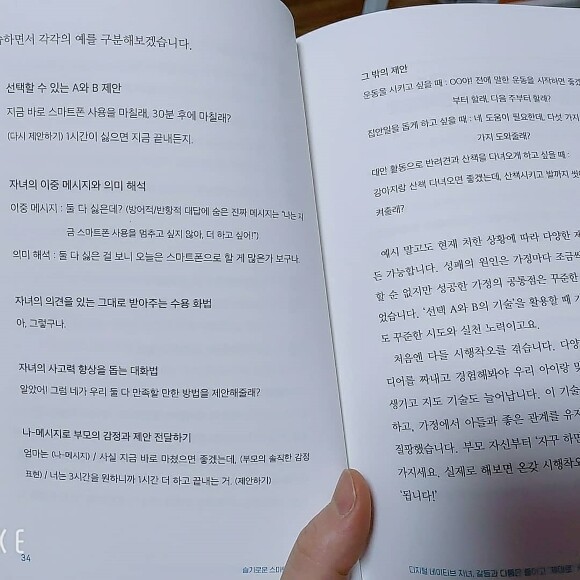 하면서 각각의 예를 구분해보겠습니다.
선택할 수 있는 A와 B 제안
지금 바로 스마트폰 사용을 마칠래, 30분 후에 마칠래?
(다시 제안하기) 1시간이 싫으면 지금 끝내든지.
자녀의 이중 메시지와 의미 해석
이중 메시지 : 둘 다 싫은데? (방어적/반항적 대답에 숨은 진짜 메시지는 "나는 지
금 스마트폰 사용을 멈추고 싶지 않아, 더 하고 싶어!")
의미 해석 : 둘 다 싫은 걸 보니 오늘은 스마트폰으로 할 게 많은가 보구나.
자녀의 의견을 있는 그대로 받아주는 수용 화법
아, 그렇구나.
자녀의 사고력 향상을 돕는 대화법
알았어! 그럼 네가 우리 둘 다 만족할 만한 방법을 제안해줄래?
나-메시지로 부모의 감정과 제안 전달하기
엄마는 (나-메시지) / 사실 지금 바로 마쳤으면 좋겠는데, (부모의 솔직한 감정
표현) / 너는 3시간을 원하니까 1시간 더 하고 끝내는 거. (제안하기)
34
슬기로운 스마
그 밖의 제안
운동을 시키고 싶을 때 : OO야! 전에 말한 운동을 시작하면 좋겠
부터 할래, 다음 주부터 할래?
집안일을 돕게 하고 싶을 때 : 네 도움이 필요한데, 다섯 가지
가지 도와줄래?
대안 활동으로 반려견과 산책을 다녀오게 하고 싶을 때 :
강아지랑 산책 다녀오면 좋겠는데, 산책시키고 발까지 씻
켜줄래?
예시 말고도 현재 처한 상황에 따라 다양한 제
든 가능합니다. 성패의 원인은 가정마다 조금씩
할 순 없지만 성공한 가정의 공통점은 꾸준한
었습니다. '선택 A와 B의 기술'을 활용할 때 가
도 꾸준한 시도와 실천 노력이고요.
처음엔 다들 시행착오를 겪습니다. 다양
디어를 짜내고 경험해봐야 우리 아이랑 맞
생기고 지도 기술도 늘어납니다. 이 기술
하고, 가정에서 아들과 좋은 관계를 유지
질팡했습니다. 부모 자신부터 '자꾸 하면
가지세요. 실제로 해보면 온갖 시행착오
'됩니다!'
디지털 네이티브 자녀, 갈등과 다툼은 줄이고